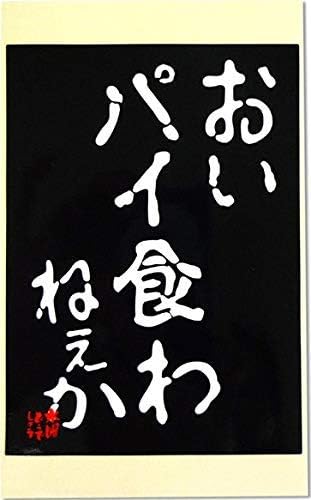 おい
パイ食わ
ねぇか